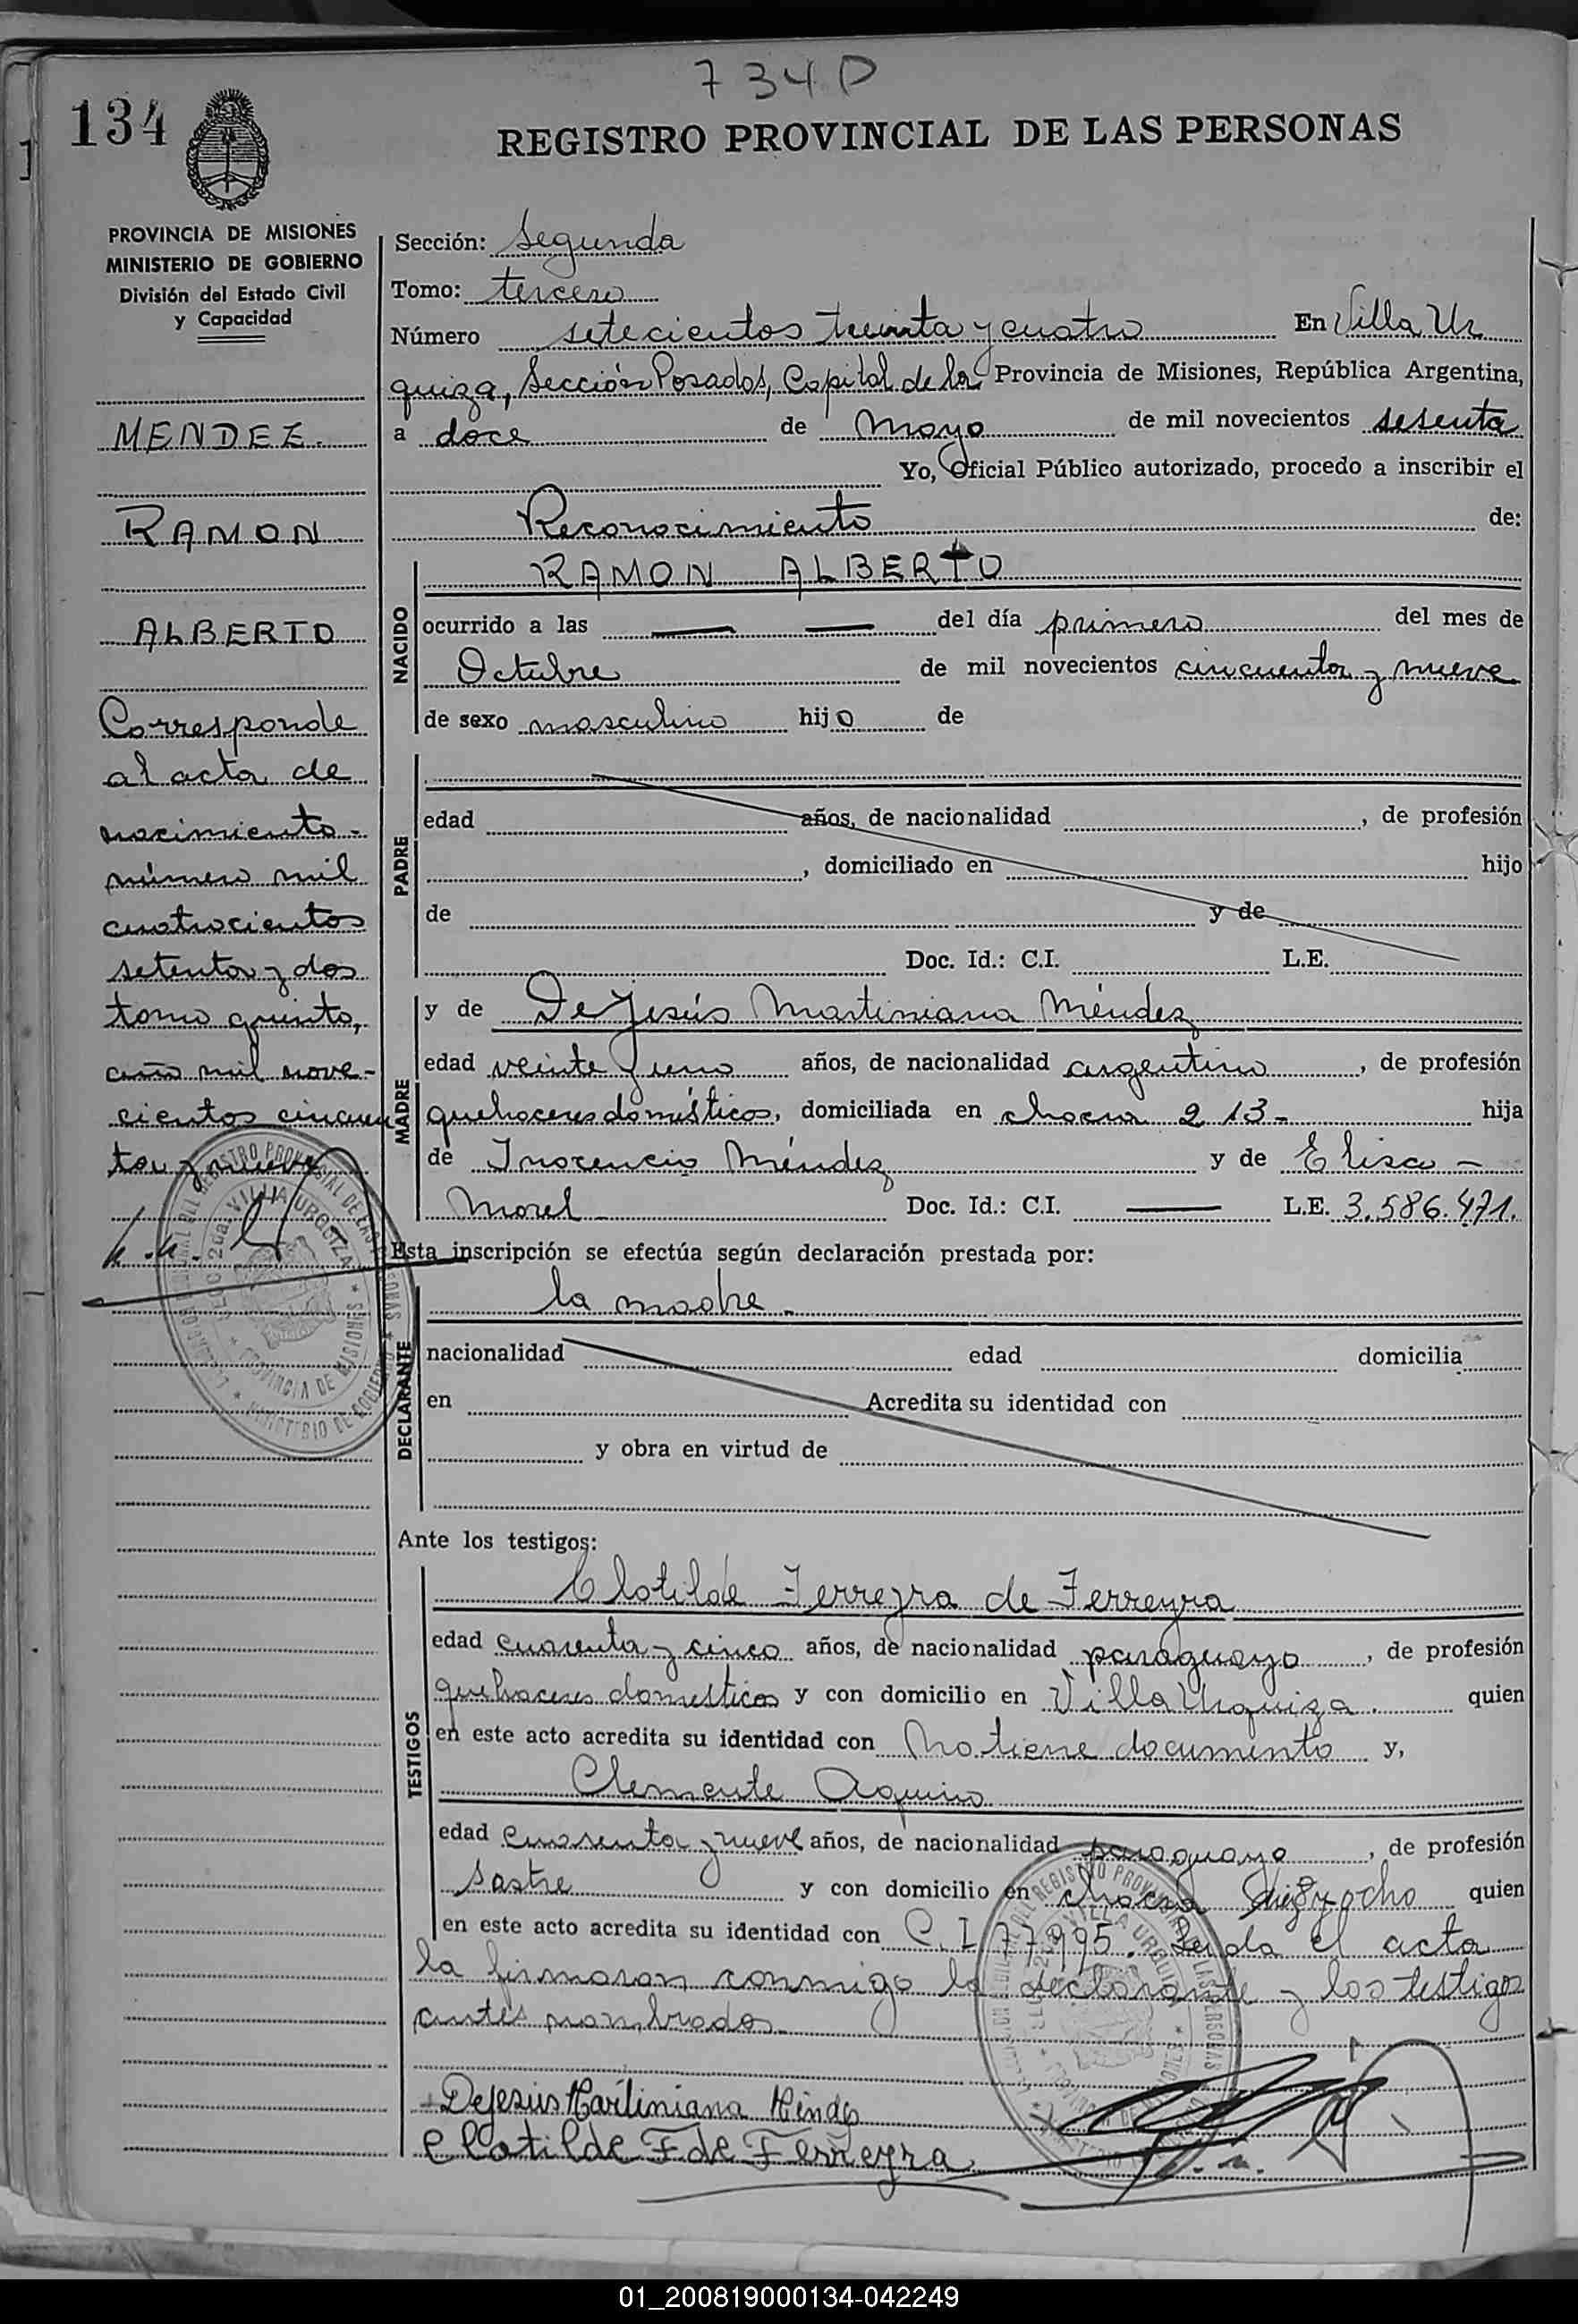 734 D
134
REGISTRO PROVINCIAL DE LAS PERSONAS
PROVINCIA DE MISIONES
MINISTERIO DE GOBIERNO
División del Estado Civil
y Capacidad
MENDEZ.
RAMON
ALBERTO
Corresponde
al acta de
nacimiento-
número mil
cuatrocientos
setenta y dos
tomo quinto,
año mil nove-
cientos cincuen
ta y nueve
Sección: Segunda
Tomo: tercero
Número setecientos treinta y cuatro En Villa Ur
quiza, Sección Posadas, Capital de la Provincia de Misiones, República Argentina,
a doce de Mayo de mil novecientos sesenta
Yo, Oficial Público autorizado, procedo a inscribir el
Reconocimiento de:
NACIDO
RAMON ALBERTO
ocurrido a las — — del día primero del mes de
Octubre de mil novecientos cincuenta y nueve
de sexo masculino hijo de
PADRE
edad años, de nacionalidad , de profesión
, domiciliado en hijo
de y de
Doc. Id.: C.I. L.E.
MADRE
y de De Jesús Martiniana Méndez
edad veinte y uno años, de nacionalidad argentino, de profesión
quehaceres domésticos, domiciliada en chacra 213- hija
de Inocencio Méndez y de Elisa -
Morel Doc. Id.: C.I. — L.E. 3.586.471.
Esta inscripción se efectúa según declaración prestada por:
DECLARANTE
la madre-
nacionalidad edad domicilia
en Acredita su identidad con
y obra en virtud de
Ante los testigos:
TESTIGOS
Clotilde Ferreyra de Ferreyra
edad cuarenta y cinco años, de nacionalidad paraguaya, de profesión
quehaceres domesticos y con domicilio en Villa Urquiza. quien
en este acto acredita su identidad con No tiene documento y,
Clemente Aquino
edad cuarenta y nueve años, de nacionalidad paraguayo, de profesión
sastre y con domicilio en chacra diez y ocho quien
en este acto acredita su identidad con C.I 77995. Leída el acta
la firmaron conmigo la declarante y los testigos
antes nombrados.
DeJesús Martiniana Méndez
Clotilde F de Ferreyra
01_200819000134-042249